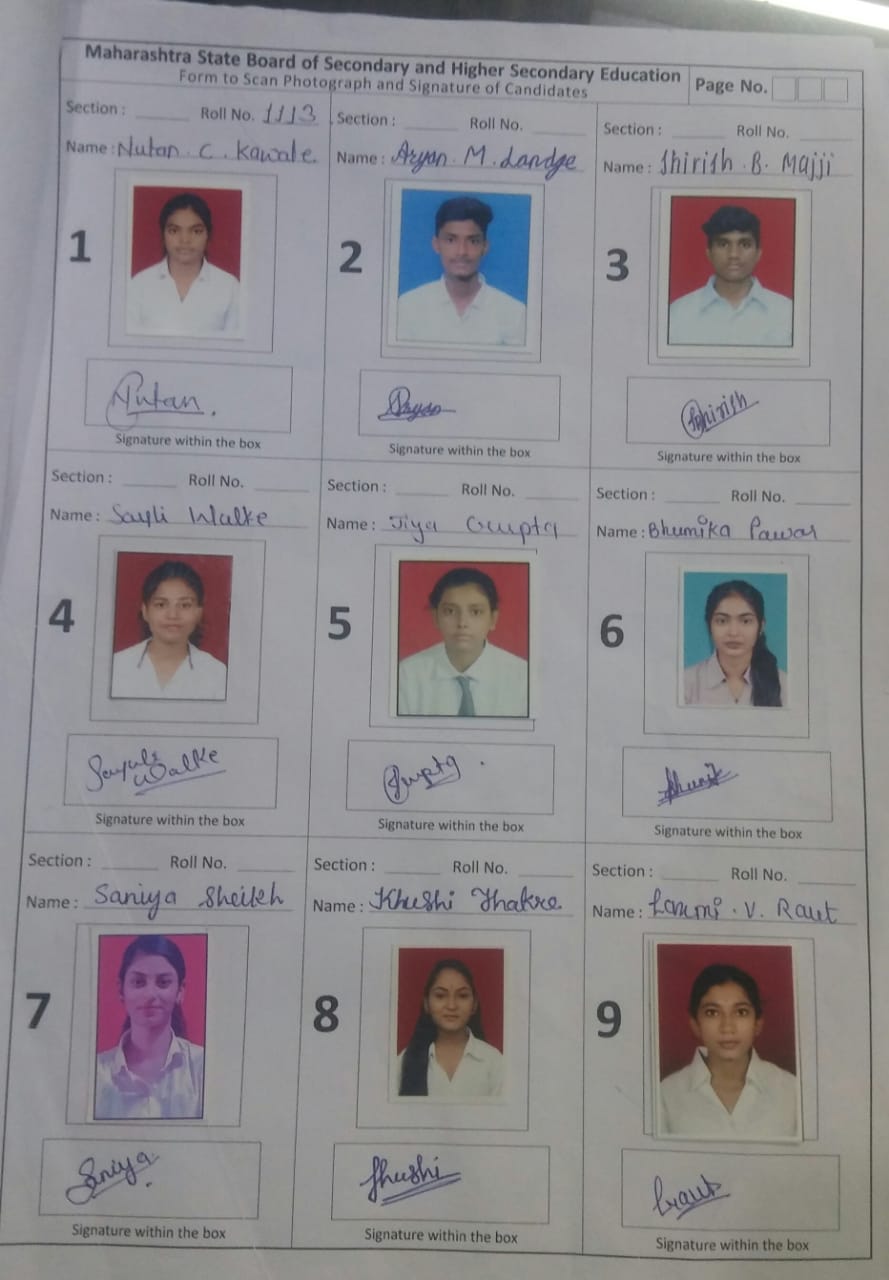 Maharashtra State Board of Secondary and Higher Secondary Education
Form to Scan Photograph and Signature of Candidates
Page No.
Section : Roll No. 1113
Name : Nutan . C . Kawale
1
Nutan.
Signature within the box
Section : Roll No.
Name : Aryan . M . Landge
2
Aryan
Signature within the box
Section : Roll No.
Name : Shirish . B . Majji
3
Shirish
Signature within the box
Section : Roll No.
Name : Sayli Walke
4
Sayuli
Walke
Signature within the box
Section : Roll No.
Name : Jiya Gupta
5
Gupta
Signature within the box
Section : Roll No.
Name : Bhumika Pawar
6
Signature within the box
Section : Roll No.
Name : Saniya Sheikh
7
Saniya
Signature within the box
Section : Roll No.
Name : Khushi Thakre
8
Khushi
Signature within the box
Section : Roll No.
Name : Laxmi . V . Raut
9
Signature within the box